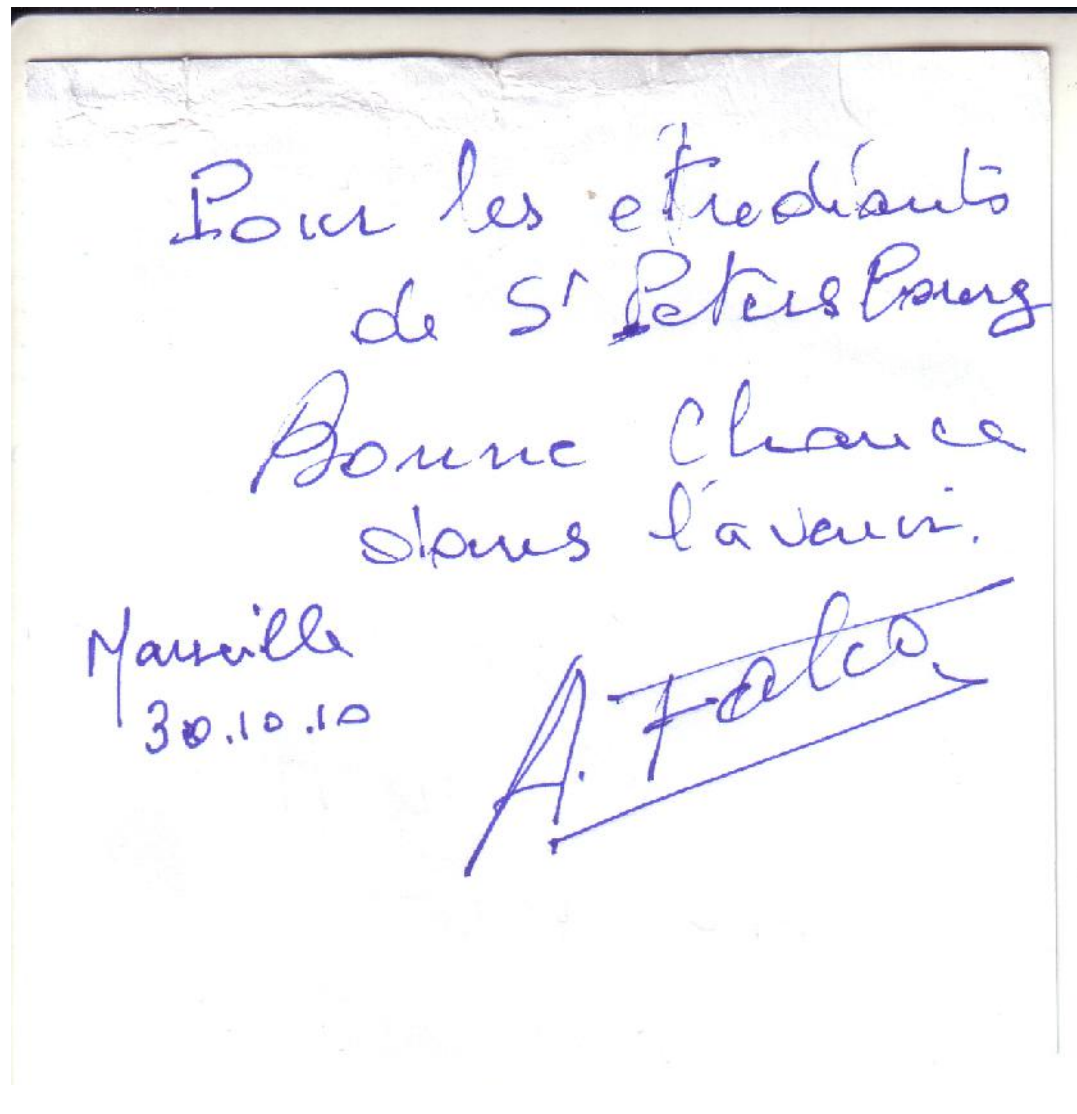 Pour les etudiants
de St Petersbourg
Bonne Chance
dans l'avenir.
Marseille
30.10.10
A. Falco